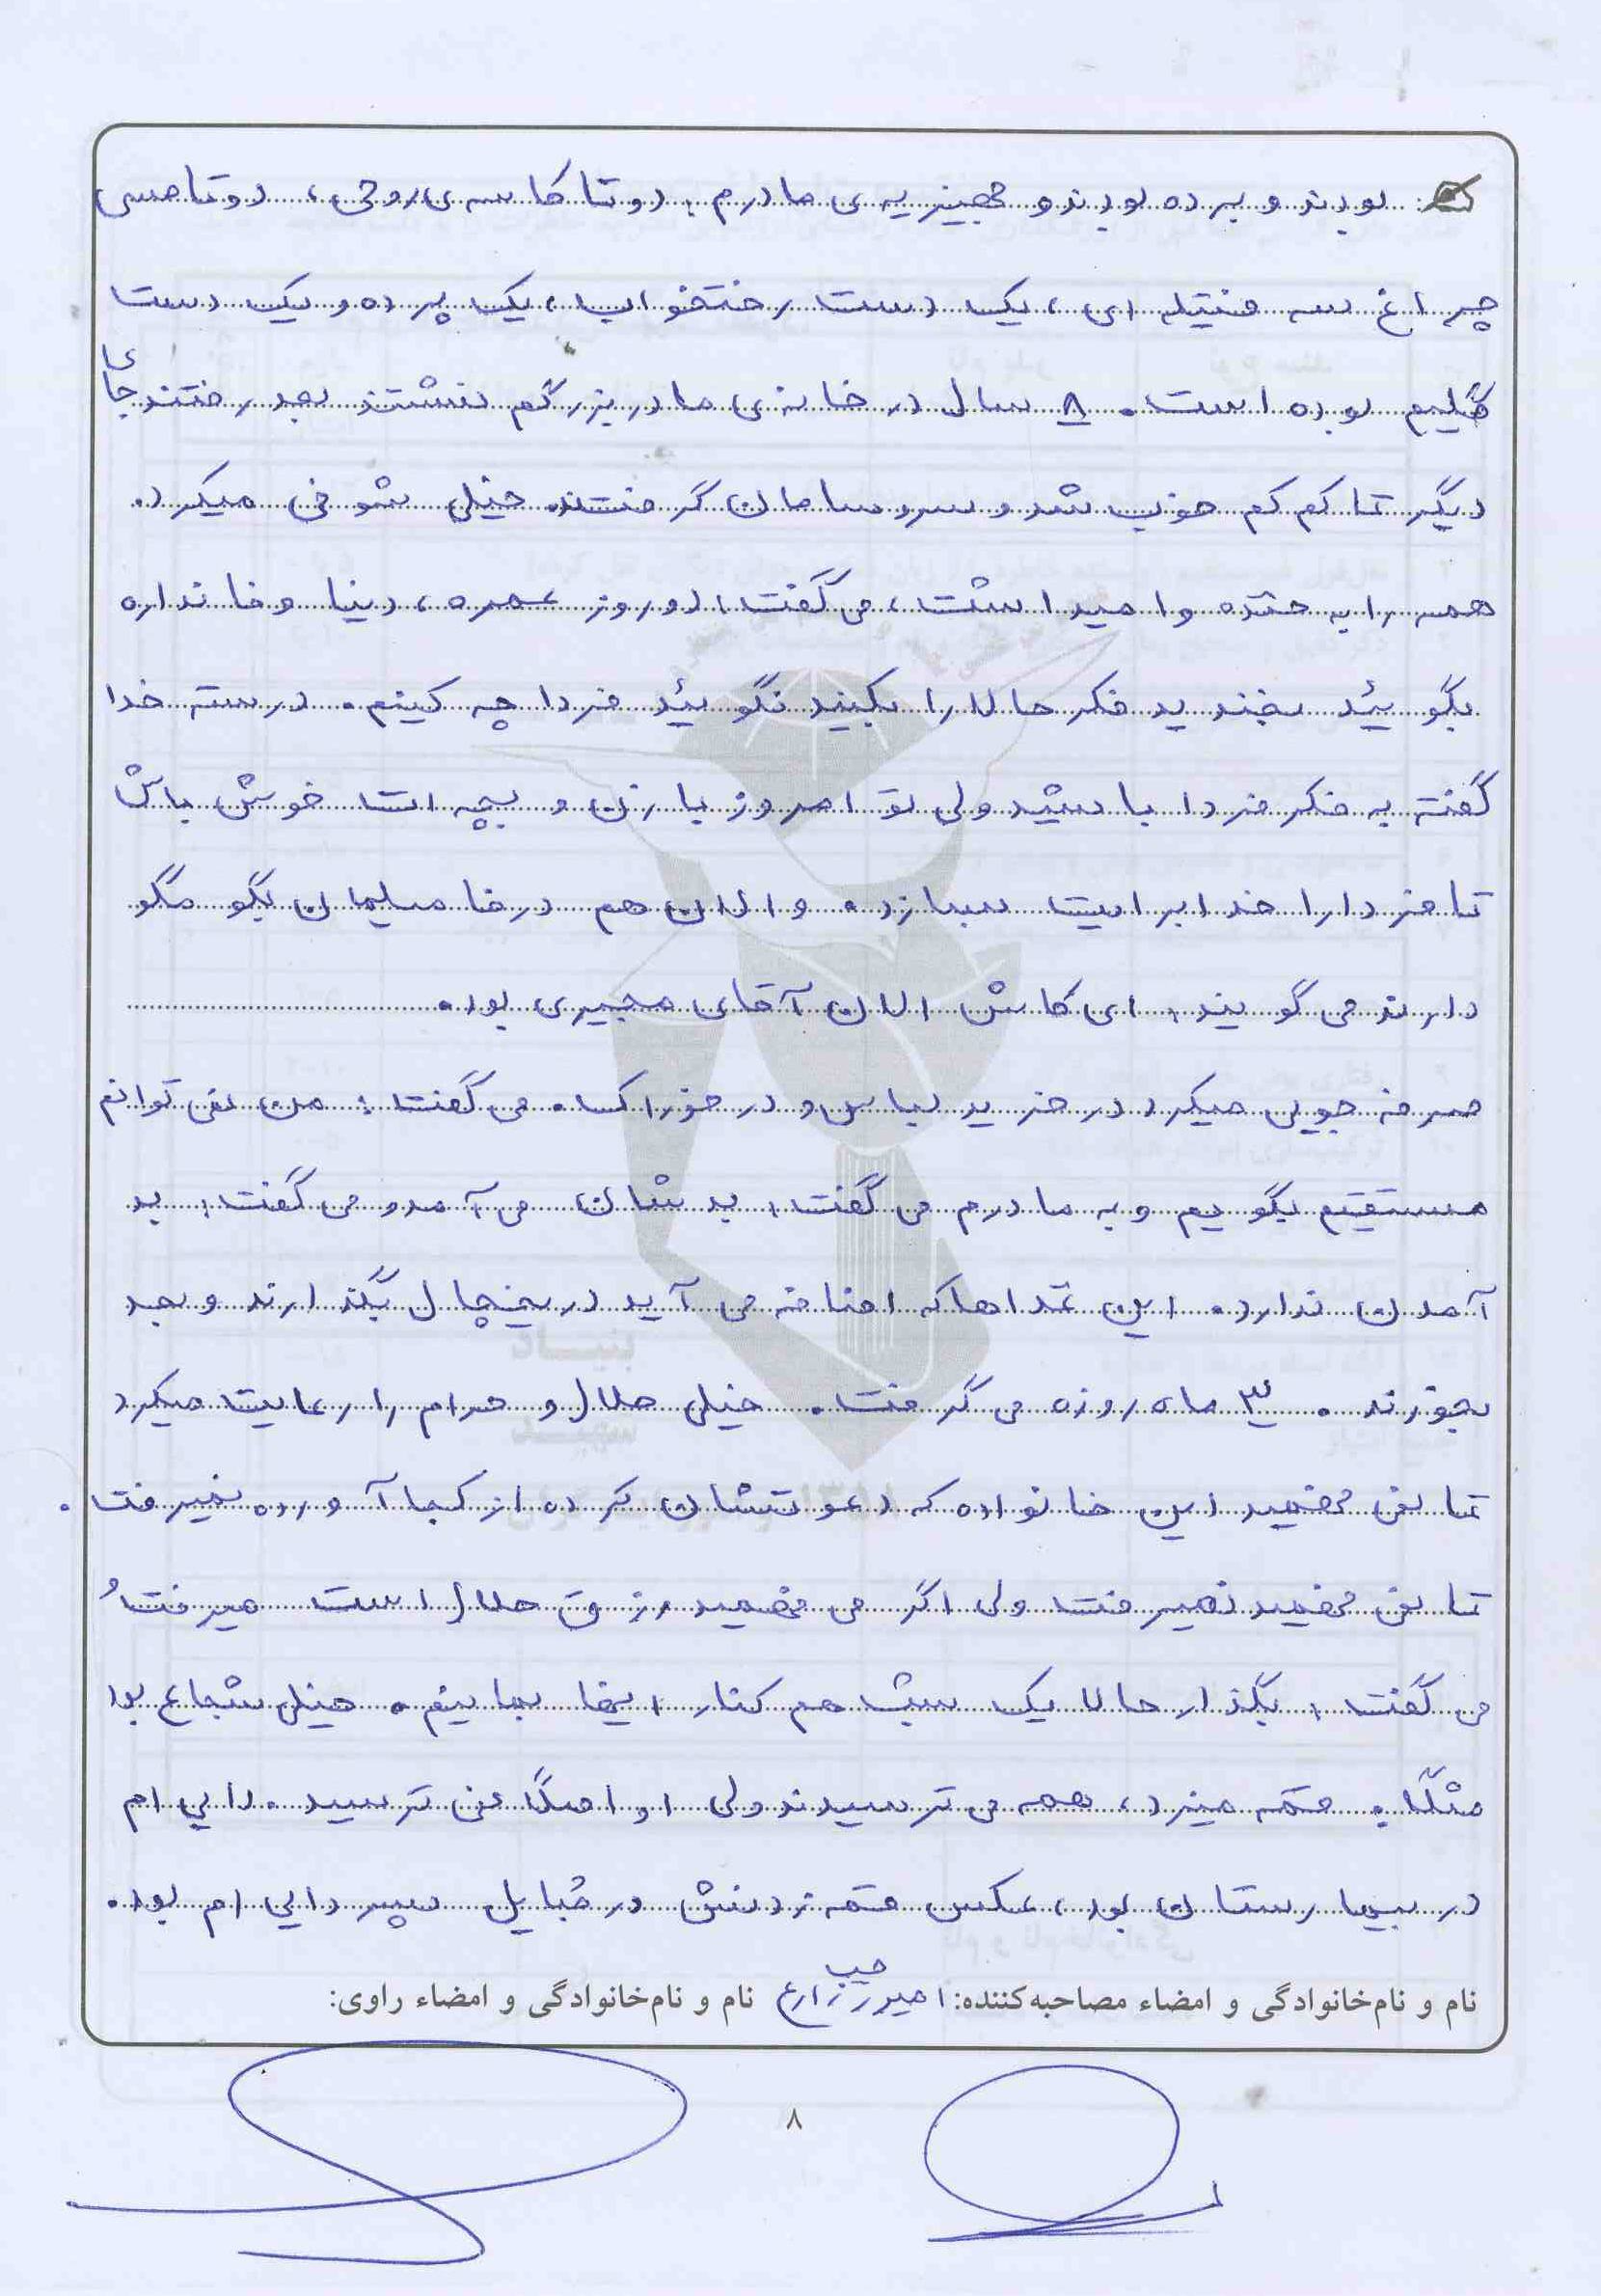 بودند و برده بودند و جهیزیه ی مادرم: دوتا کاسه ی روحی، دوتا مسی
چراغ سه فتیله ای، یک دست رختخواب، یک پرده و یک دست
گلیم بوده است. ۸ سال در خانه ی مادربزرگم نشستند بعد رفتند جای
دیگر تا کم کم خوب شد و سر و سامان گرفتند. خیلی شوخی میکرد.
همه را به خنده وا میداشت، می گفت: دو روز عمره، دنیا وفا نداره
بگوئید بخندید فکر حالا را بکنید نگوئید فردا چه کنیم. درسته خدا
گفته به فکر فردا باشید ولی تو امروز با زن و بچه ات خوش باش
تا فردا را خدا برایت بسازد. و الان هم در فامیلمان بگو مگو
دارند می گویند: ای کاش الان آقای مجیری بود.
صرفه جویی میکرد در خرید لباس و در خوراک. می گفت: من نمی توانم
مستقیم بگویم و به مادرم می گفت: بدشان می آمد و می گفت: بد
آمدن ندارد. این غذاها که اضافه می آید در یخچال بگذارند و بعد
بخورند. ۳ ماه روزه می گرفت. خیلی حلال و حرام را رعایت میکرد
تا نمی فهمید این خانواده که دعوتشان کرده از کجا آورده نمیرفت.
تا نمی فهمید نمیرفت ولی اگر می فهمید رزق حلال است میرفت
می گفت: بگذار حالا یک شب هم کنار اینها بمانیم. خیلی شجاع بود
مثلاً: قمه میزد، همه می ترسیدند ولی او اصلاً نمی ترسید. دایی ام
در بیمارستان بود، عکس قمه زدنش در مُبایل پسر دایی ام بود.
نام و نام‌خانوادگی و امضاء مصاحبه‌کننده: امیر زارع نام و نام‌خانوادگی و امضاء راوی:
۸